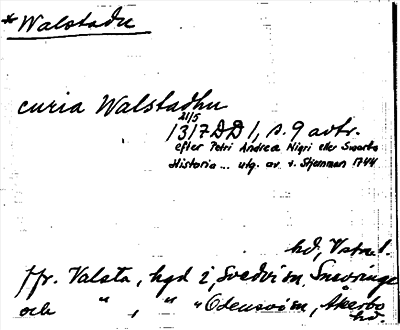 *Walstadu
curia Walstadhu
21/5
1317 DD 1, s. 9 avtr.
efter Petri Andreæ Nigri eller Swarts
Historia... utg. av v. Stjernman 1744
hd, Vstml.
Jfr. Valsta, hgd i, Svedvi sn, Snevringe
och " , " " Odensvi sn, Åkerbo
hd.